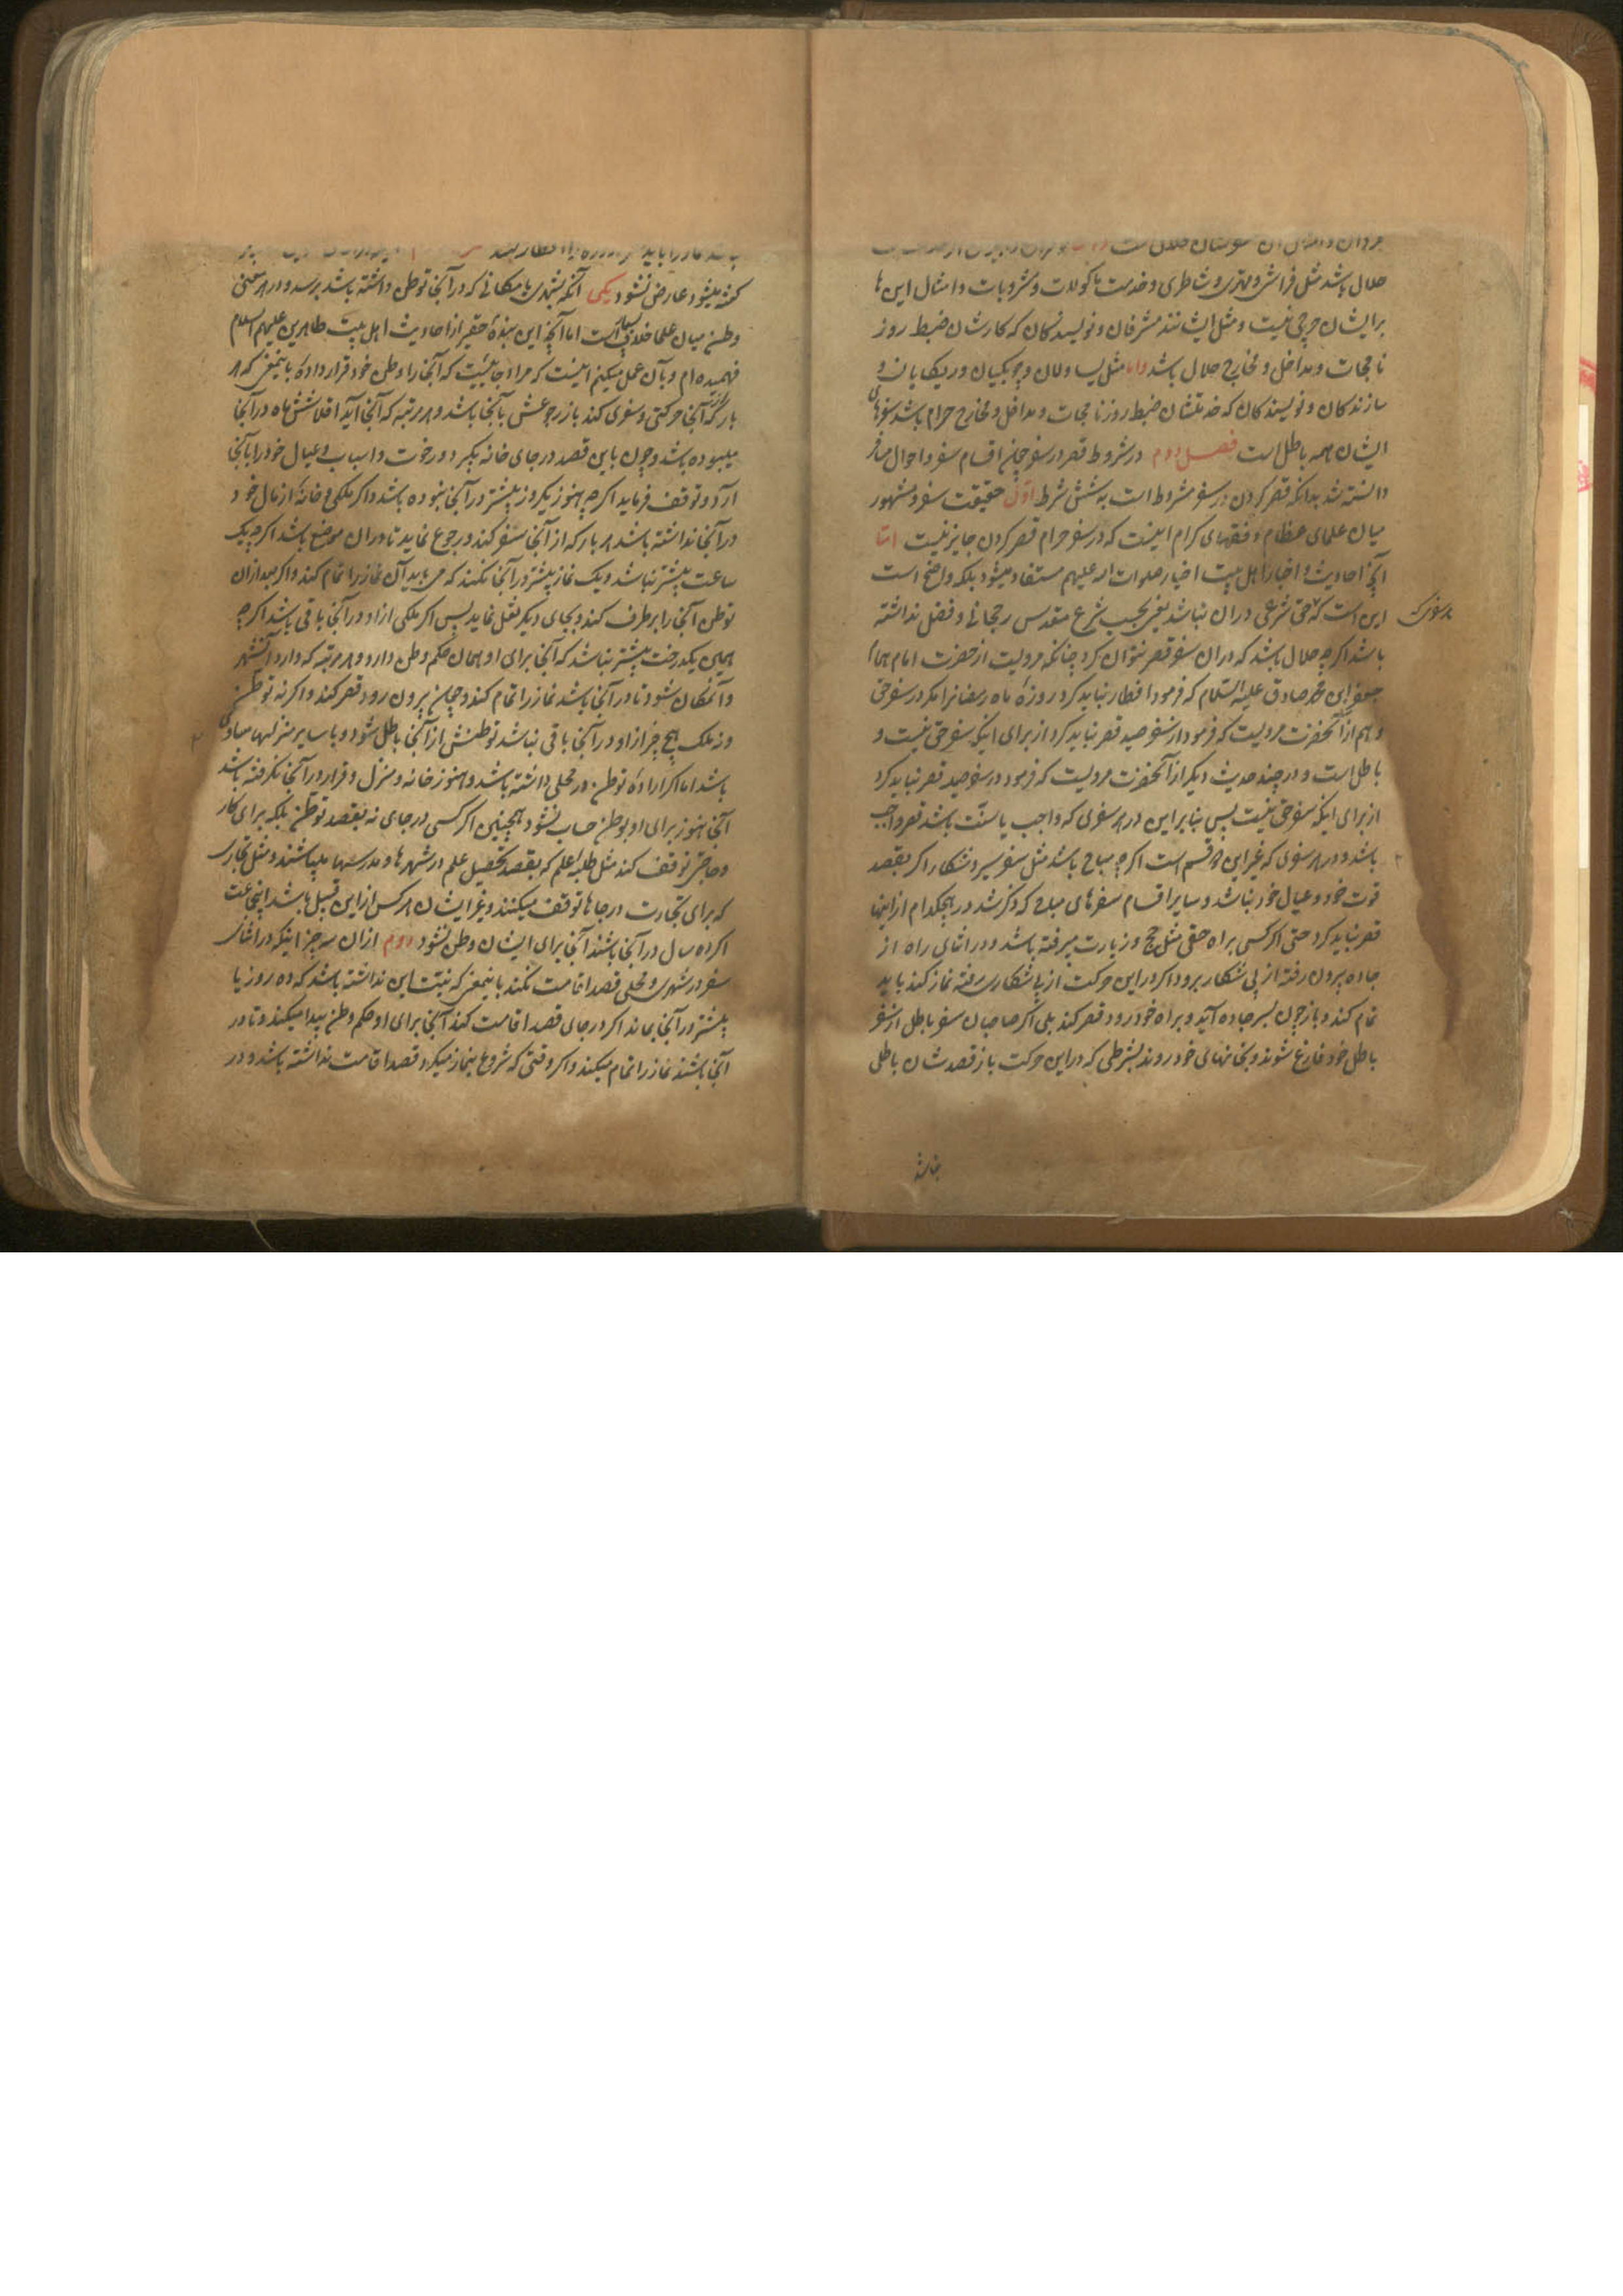 حلال باشد مثل فراشی و مهتری و شاطری و خدمت ماکولات و مشروبات و امثال این ها
برایشان حرجی نیست و مثل ایشانند مشرفان و نویسندکان که کارشان ضبط روز
نامجات و مداخل و مخارج حلال باشد و اما مثل یساولان و چوبکیان و ریکایان و
سازندکان و نویسندکان که خدمتشان ضبط روزنامجات و مداخل و مخارج حرام باشد سفرهای
ایشان همه باطل است فصل دوم در شروط قصر در سفر چون اقسام سفر و احوال مسافر
دانسته شد بدانکه قصر کردن در سفر مشروط است به شش شرط اول حقیقت سفر و مشهور
میان علمای عظام و فقهای کرام اینست که در سفر حرام قصر کردن جایز نیست اما
آنچه از احادیث و اخبار اهل بیت اخیار صلوات الله علیهم مستفاد میشود بلکه واضح است
این است که حقی شرعی در ان نباشد یعنی بحسب شرع مقدس رجحانی و فضلی نداشته
باشد اکرچه حلال باشد که در ان سفر قصر نتوان کرد چنانکه مرویست از حضرت امام همام
جعفر ابن محمد صادق علیه السلام که فرمود افطار نباید کرد روزهٔ ماه رمضانرا مکر در سفر حق
و هم از آنحضرت مرویست که فرمود از سفر صید قصر نباید کرد از برای اینکه سفر حق نیست و
باطل است و در چند حدیث دیکر از آنحضرت مرویست که فرمود در سفر صید قصر نباید کرد
از برای اینکه سفر حق نیست پس بنابراین در هر سفری که واجب یا سنت باشد قصر واجب
باشد و در هر سفری که غیر این دو قسم است اکرچه مباح باشد مثل سفر سیر و شکار اکر بقصد
قوت خود و عیال خود نباشد و سایر اقسام سفرهای مباح که ذکر شد در هیچکدام از اینها
قصر نباید کرد حتی اکر کسی براه حقی مثل حج و زیارت میرفته باشد و در اثنای راه از
جاده بیرون رفته از پی شکار برود اکر در این حرکت از پی شکاری رفته نماز کند باید
تمام کند و باز چون بسر جاده آید و براه خود رود قصر کند بلی اکر صاحبان سفر باطل از سفر
باطل خود فارغ شوند و بخانهای خود روند بشرطی که در این حرکت باز قصدشان باطل
نباشد
کفته میشود عارض نشود یکی آنکه بشهری یا مکانی که در آنجا توطن داشته باشد برسد و در معنی
وطن میان علما خلاف بسیار است اما آنچه این بندهٔ حقیر از احادیث اهل بیت طاهرین علیهم السلام
فهمیده ام و بآن عمل میکنم اینست که مراد جائیست که آنجا را وطن خود قرار داده باینمعنی که هر
بار که از آنجا حرکتی و سفری کند باز رجوعش بآنجا باشد و هر مرتبه که آنجا آید اقلا شش ماه در آنجا
میبوده باشد و چون باین قصد در جای خانه بکیرد و رخوت و اسباب و عیال خود را بآنجا
آرد و توقف فرماید اکرچه هنوز یکروز بیشتر در آنجا نبوده باشد و اکر ملکی و خانهٔ از مال خود
در آنجا نداشته باشد هر بار که از آنجا سفر کند و رجوع نماید تا در ان موضع باشد اکرچه یک
ساعت بیشتر نباشد و یک نماز بیشتر در آنجا نکند که می باید آن نماز را تمام کند و اکر بعد از ان
توطن آنجا را برطرف کند و بجای دیکر نقل نماید پس اکر ملکی از او در آنجا باقی باشد اکرچه
همین یکدرخت بیشتر نباشد که آنجا برای او همان حکم وطن دارد و هر مرتبه که وارد آنشهر
و آنمکان شود تا در آنجا باشد نماز را تمام کند و چون بیرون رود قصر کند و اکر نه توطن
و نه ملک هیچ چیز از او در آنجا باقی نباشد توطنش از آنجا باطل شود و با سایر منزلها مساوی
باشد اما اکر ارادهٔ توطن در محلی داشته باشد و هنوز خانه و منزل و قرار در آنجا نکرفته باشد
آنجا هنوز برای او وطن حساب نشود و همچنین اکر کسی در جای نه بقصد توطن بلکه برای کار
و حاجتی توقف کند مثل طلبهٔ علم که بقصد تحصیل علم در شهرها و مدرسها میباشند و مثل تجاری
که برای تجارت در جاها توقف میکنند و غیر ایشان هر کس از این قبیل باشد اینجماعت
اکر ده سال در آنجا باشند آنجا برای ایشان وطن نشود دوم از ان سه چیز اینکه در اثنای
سفر در شهری و محلی قصد اقامت نکند باینمعنی که نیت این نداشته باشد که ده روز یا
بیشتر در آنجا بماند اکر در جای قصد اقامت کند آنجا برای او حکم وطن پیدا میکند و تا در
آنجا باشد نماز را تمام میکند و اکر وقتی که شروع بنماز میکرد قصد اقامت نداشته باشد و در